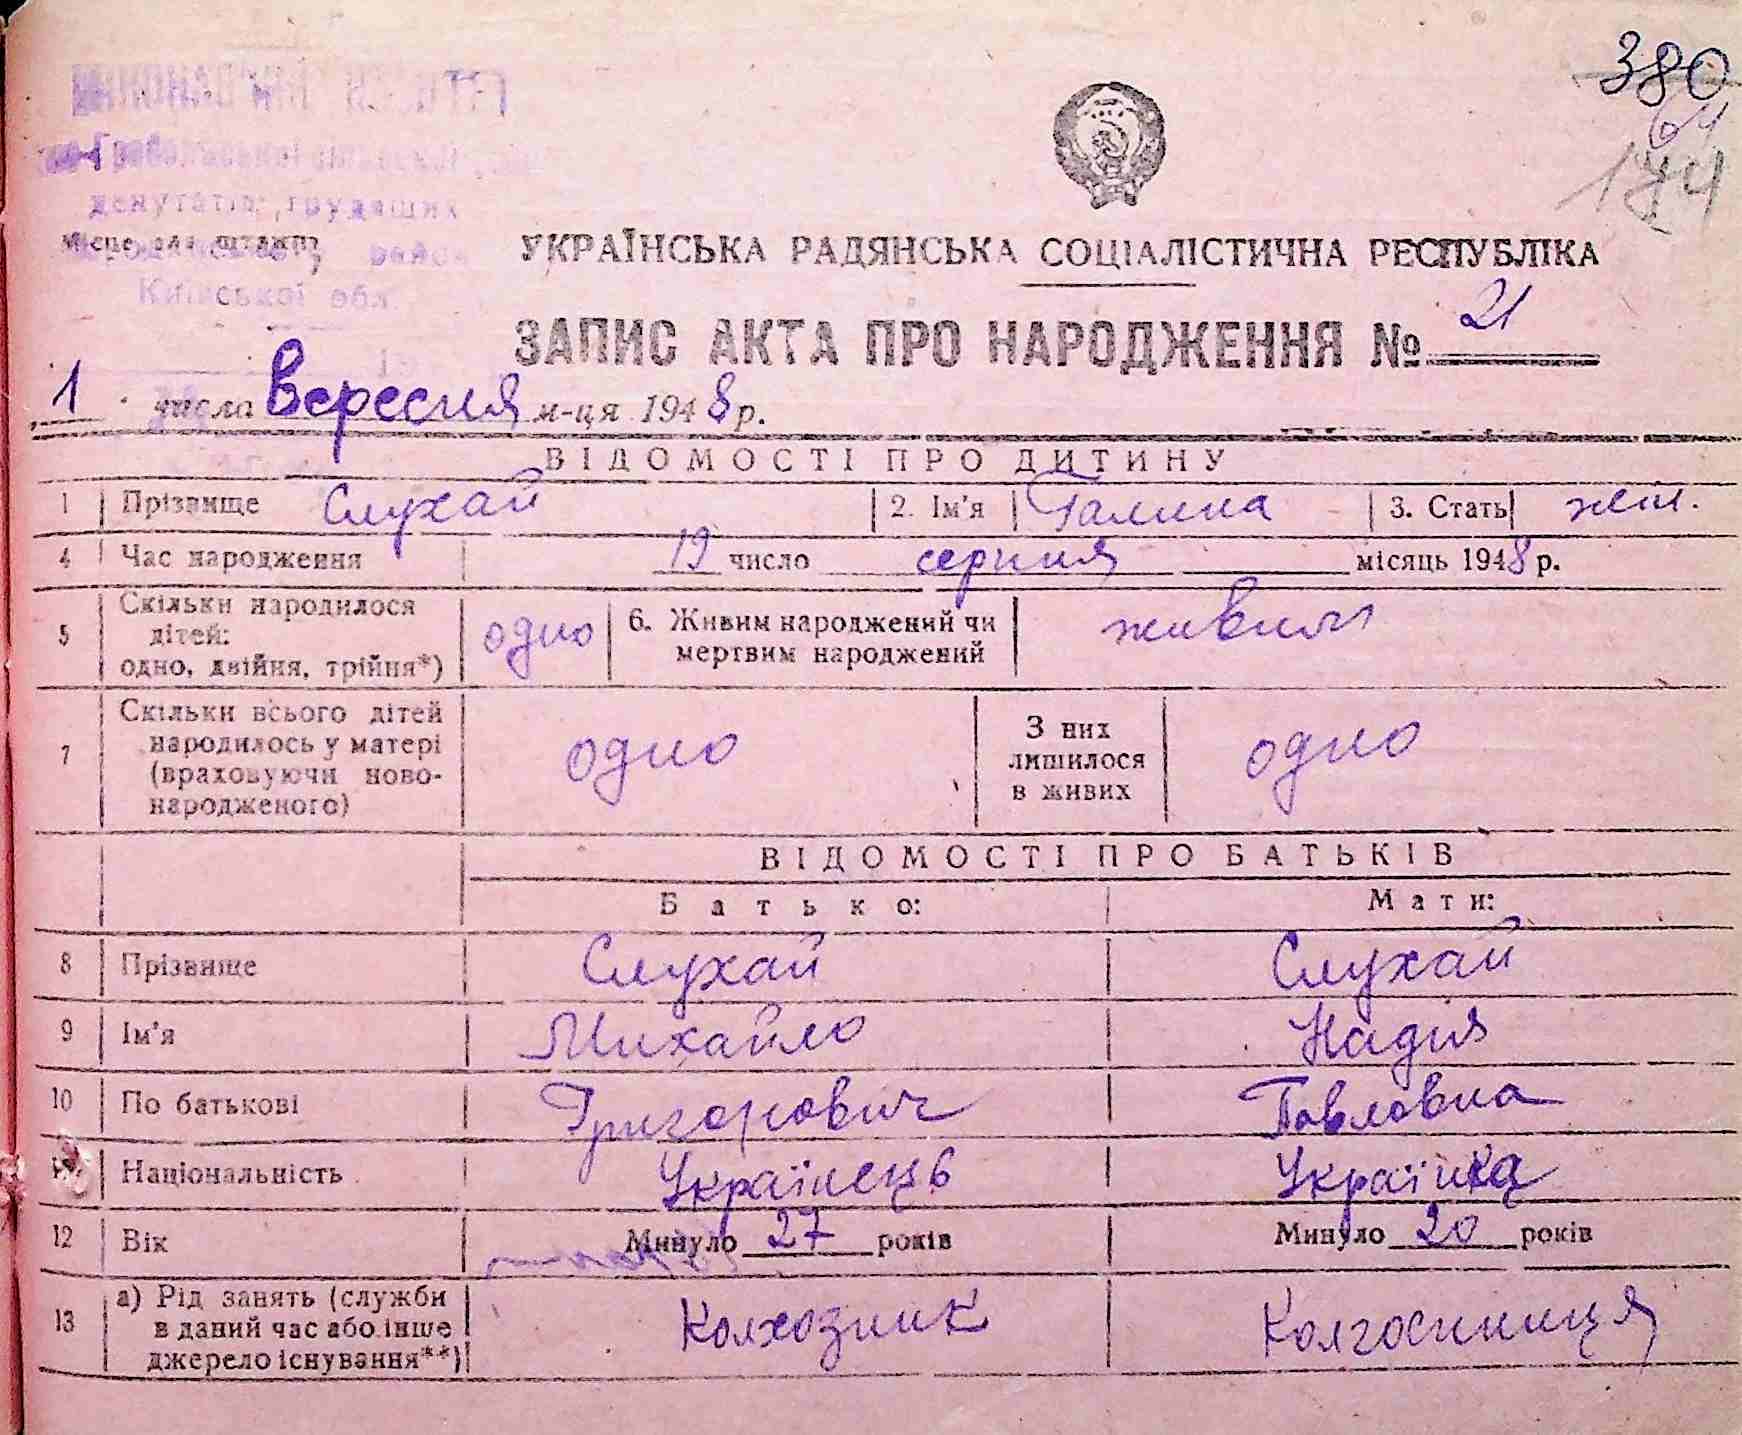 380
64
174
депутатів трудящих
місце для штампу
Київської обл.
УКРАЇНСЬКА РАДЯНСЬКА СОЦІАЛІСТИЧНА РЕСПУБЛІКА
ЗАПИС АКТА ПРО НАРОДЖЕННЯ № 21
1 числа вересня м-ця 1948 р.
ВІДОМОСТІ ПРО ДИТИНУ
1 Прізвище Слухай 2. Ім'я Галина 3. Стать жін.
4 Час народження 19 число серпня місяць 1948 р.
5 Скільки народилося дітей: одно, двійня, трійня*) одно 6. Живим народжений чи мертвим народжений живим
7 Скільки всього дітей народилось у матері (враховуючи новонародженого) одно З них лишилося в живих одно
ВІДОМОСТІ ПРО БАТЬКІВ
Батько: Мати:
8 Прізвище Слухай Слухай
9 Ім'я Михайло Надія
10 По батькові Григорович Павловна
11 Національність Українець Українка
12 Вік Минуло 27 років Минуло 20 років
13 а) Рід занять (служби в даний час або інше джерело існування**) Колхозник Колгосниця